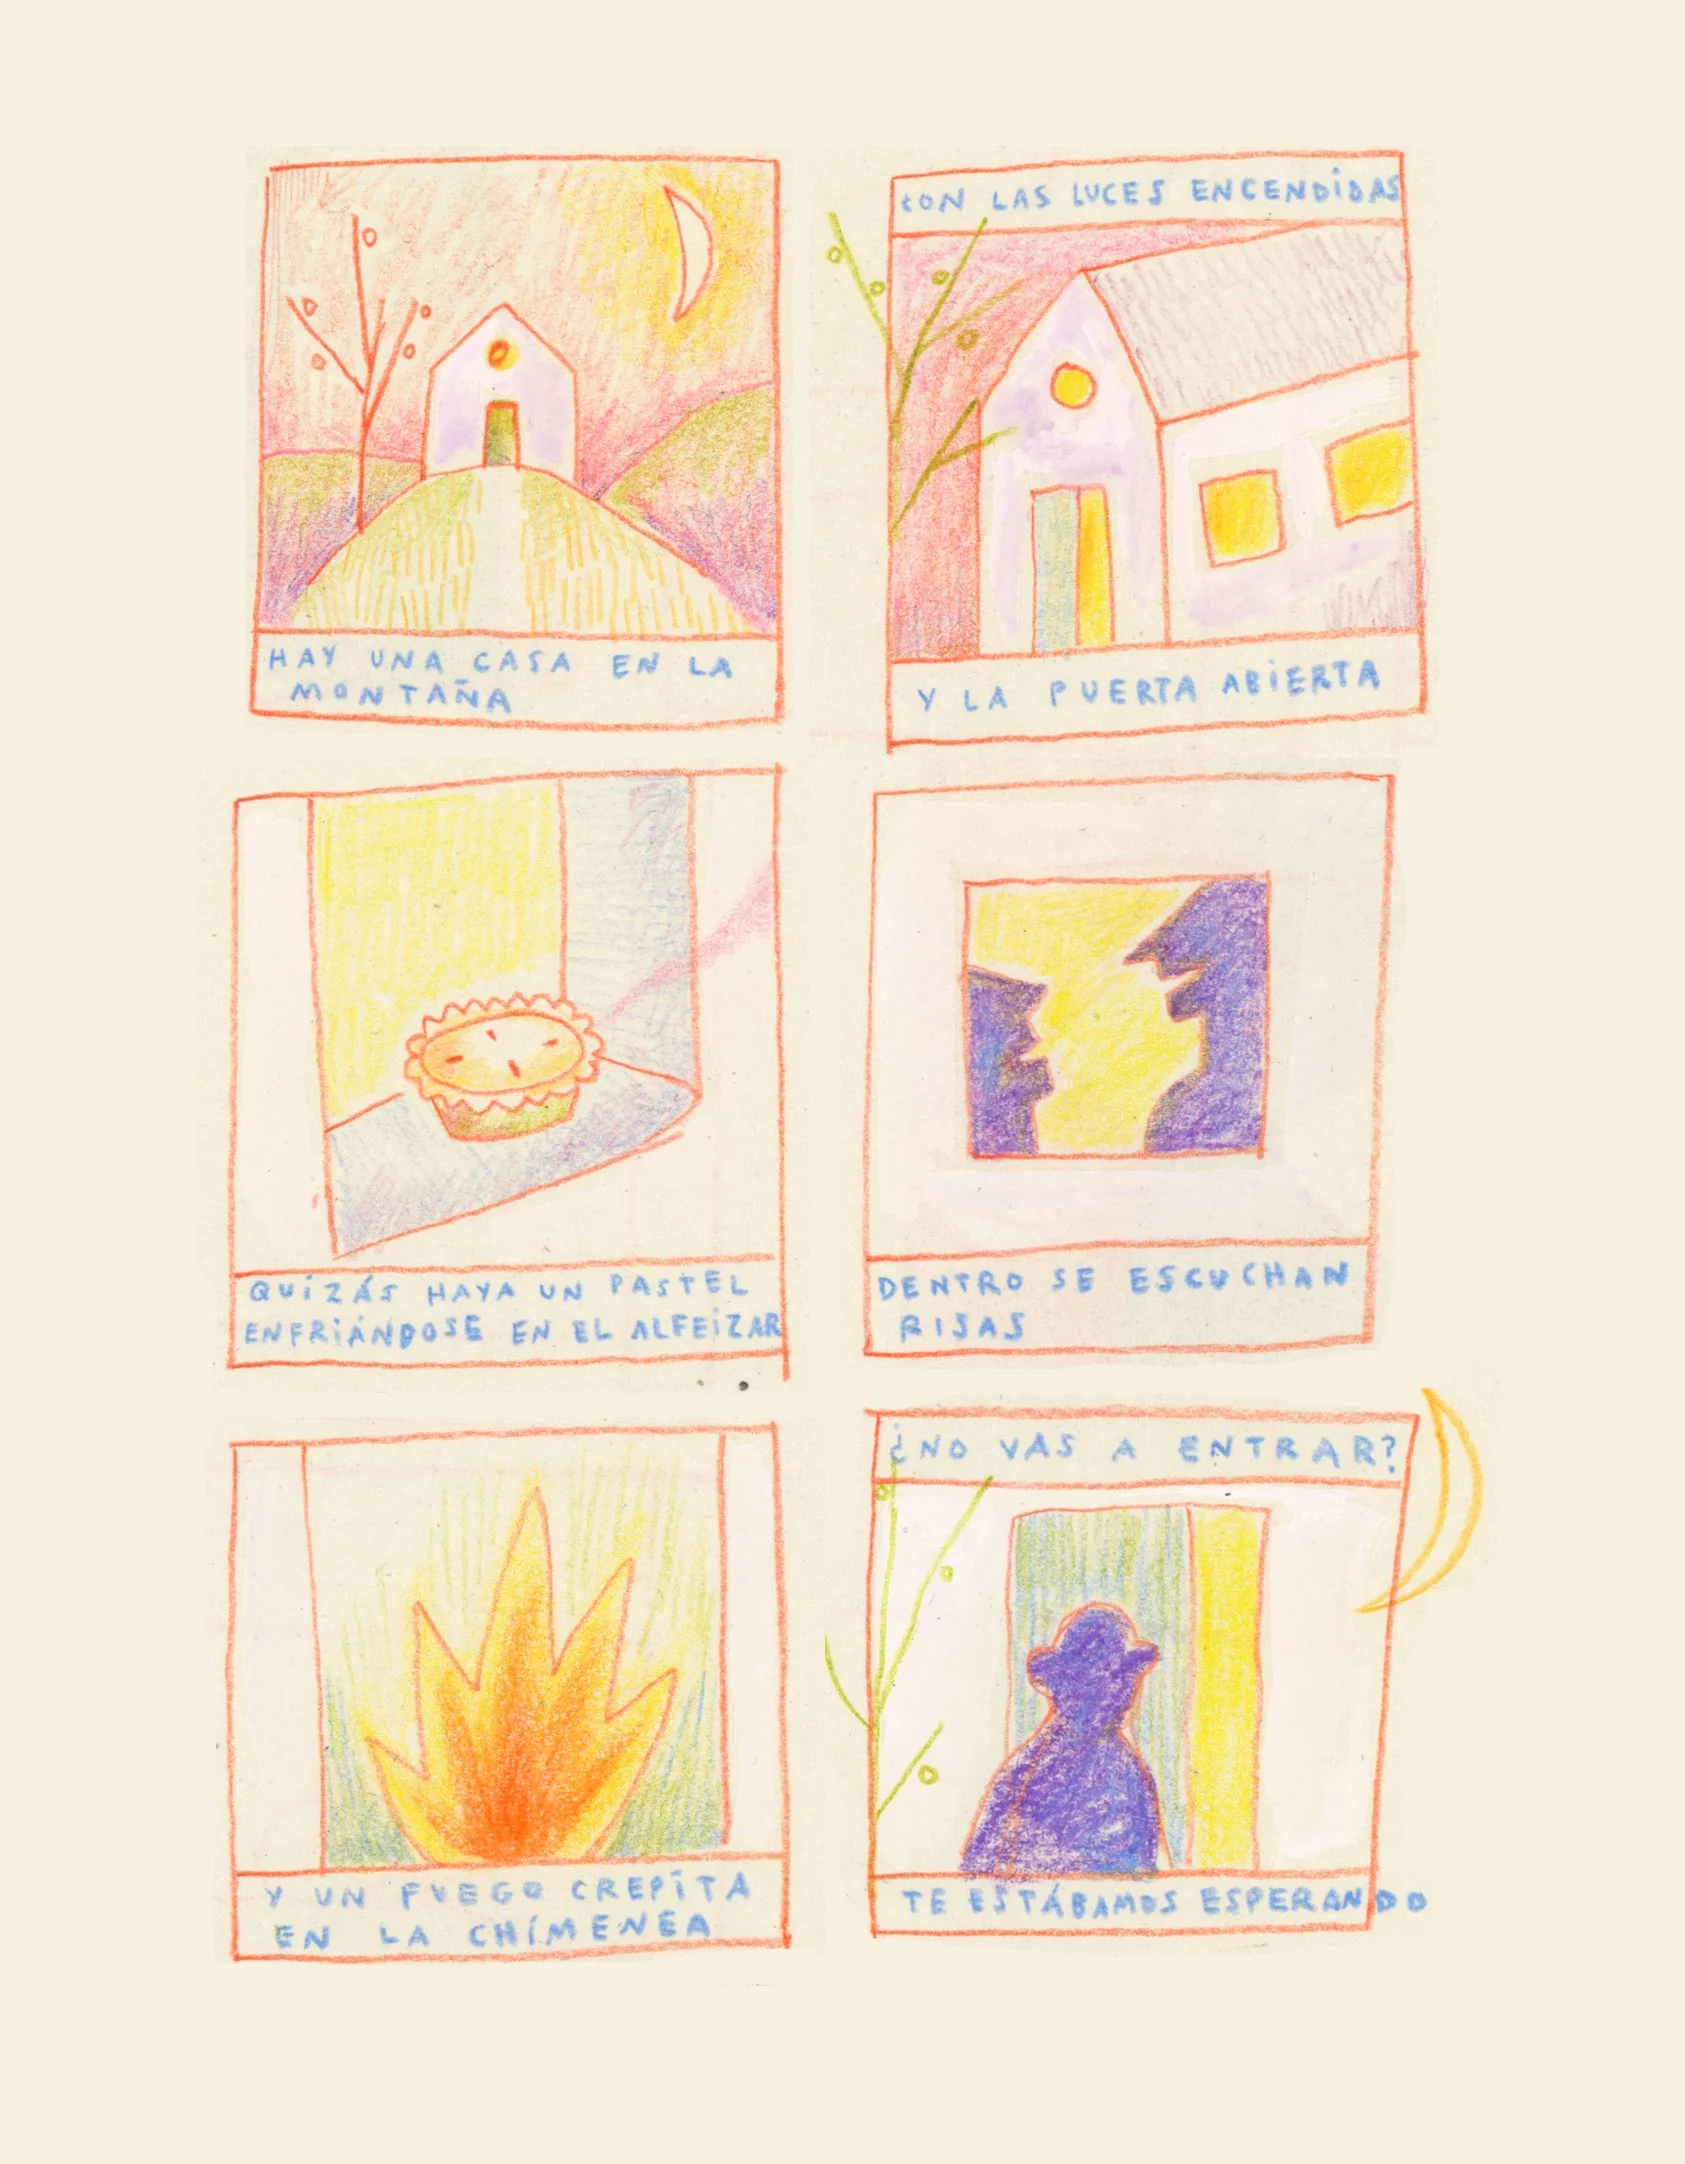 HAY UNA CASA EN LA
MONTAÑA
CON LAS LUCES ENCENDIDAS
Y LA PUERTA ABIERTA
QUIZÁS HAYA UN PASTEL
ENFRIÁNDOSE EN EL ALFEIZAR
DENTRO SE ESCUCHAN
RISAS
Y UN FUEGO CREPITA
EN LA CHIMENEA
¿NO VAS A ENTRAR?
TE ESTÁBAMOS ESPERANDO